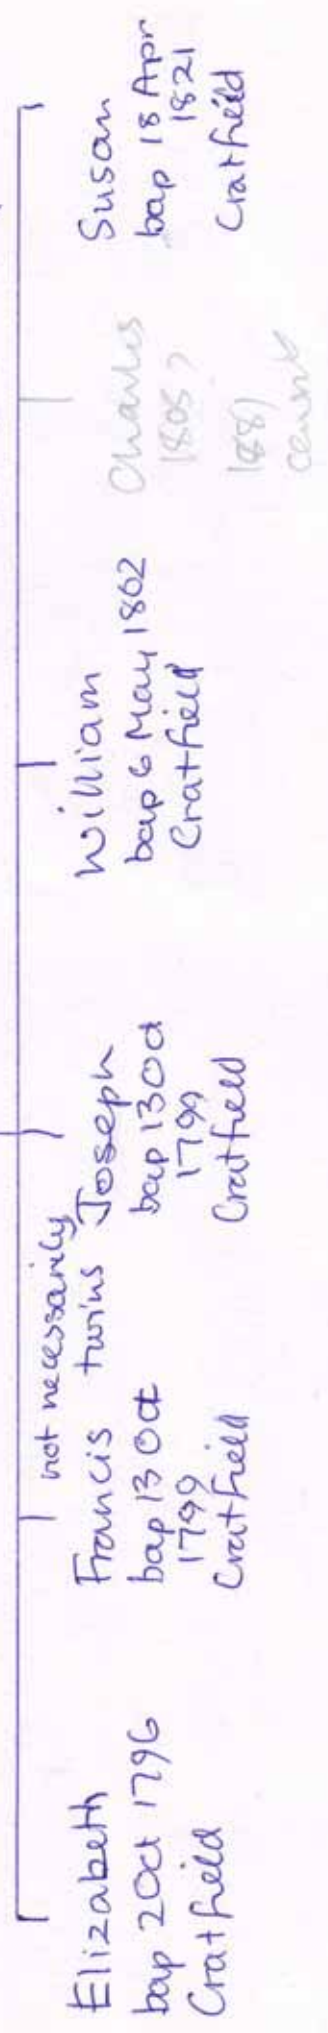 Elizabeth
bap 2 Oct 1796
Cratfield
not necessarily
twins
Francis
bap 13 Oct
1799
Cratfield
Joseph
bap 13 Oct
1799
Cratfield
William
bap 6 May 1802
Cratfield
Charles
1805?
1881
census
Susan
bap 18 Apr
1821
Cratfield